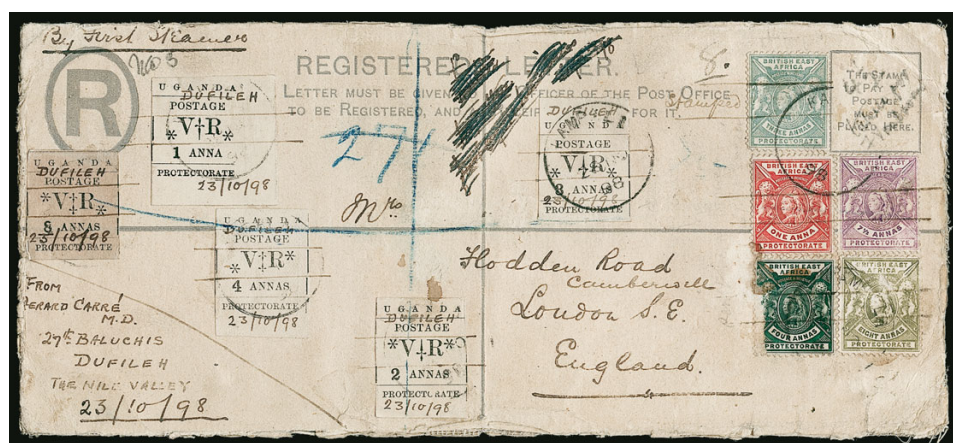 By First Steamer
No 3
R
REGISTERED LETTER.
LETTER MUST BE GIVEN OFFICER OF THE POST OFFICE
TO BE REGISTERED, AND FOR IT.
8.
Stamped
THE STAMP
PAY
POSTAGE
MUST BE
PLACED HERE.
274
UGANDA
DUFILEH
POSTAGE
*V‡R*
1 ANNA
PROTECTORATE
23/10/98
UGANDA
DUFILEH
POSTAGE
*V‡R*
8 ANNAS
23/10/98
PROTECTORATE
UGANDA
DUFILEH
POSTAGE
*V‡R*
4 ANNAS
PROTECTORATE
23/10/98
DUFILEH
UGANDA
POSTAGE
*V‡R*
3 ANNAS
23/10/98
PROTECTORATE
UGANDA
DUFILEH
POSTAGE
*V‡R*
2 ANNAS
PROTECTORATE
23/10/98
BRITISH EAST
AFRICA
THREE ANNAS
PROTECTORATE
BRITISH EAST
AFRICA
ONE ANNA
PROTECTORATE
BRITISH EAST
AFRICA
7½ ANNAS
PROTECTORATE
BRITISH EAST
AFRICA
FOUR ANNAS
PROTECTORATE
BRITISH EAST
AFRICA
EIGHT ANNAS
PROTECTORATE
Mrs
Flodden Road
Camberwell
London S.E.
England.
FROM
CARRÉ
M.D.
27th BALUCHIS
DUFILEH
THE NILE VALLEY
23/10/98